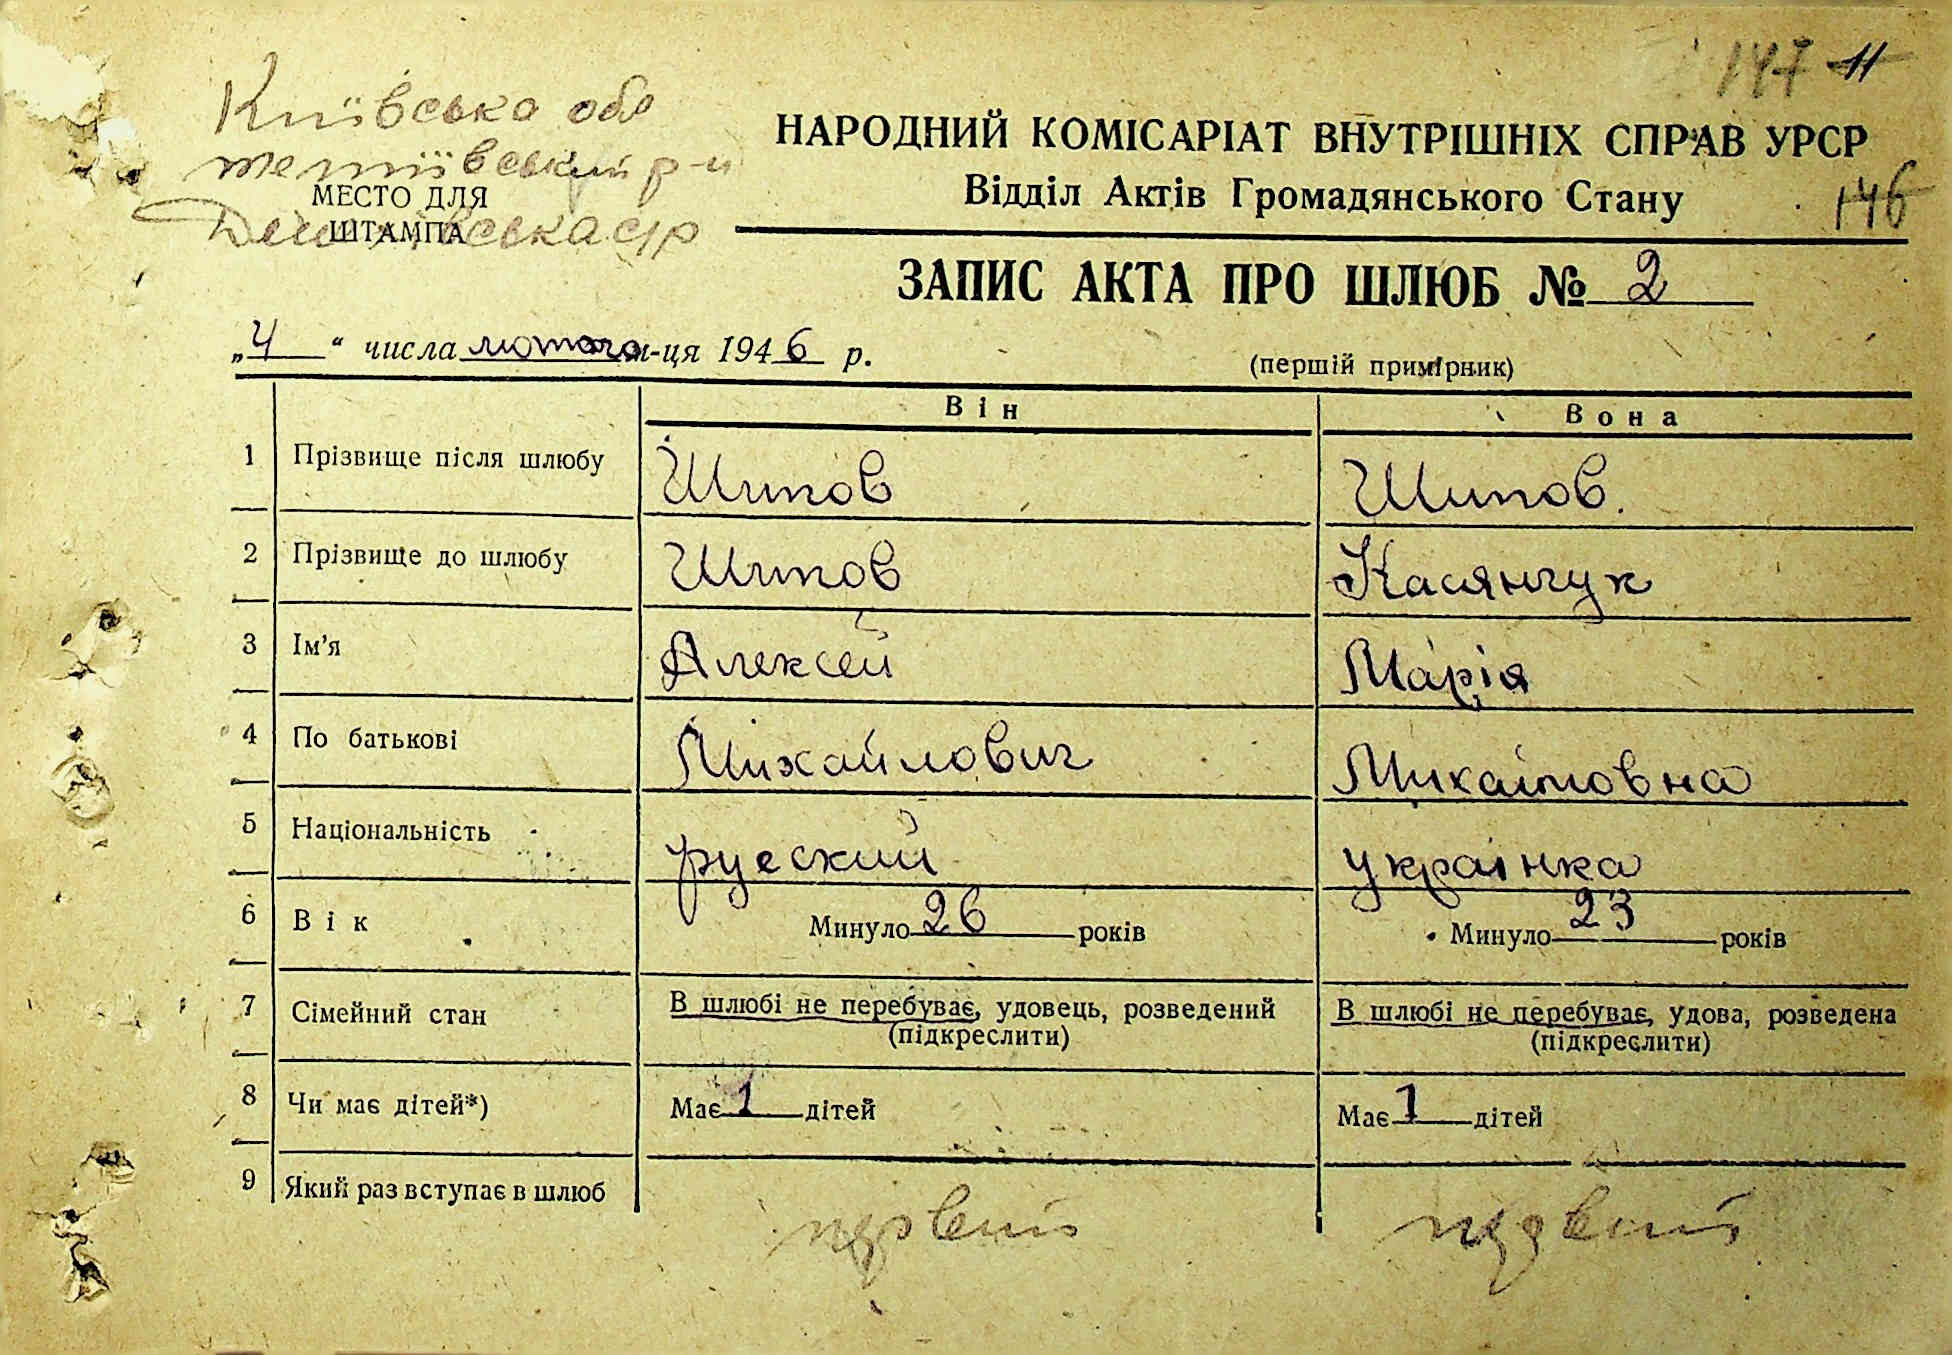 147 11
Київська обл
тетіївський р-н
МЕСТО ДЛЯ
ШТАМПА
НАРОДНИЙ КОМІСАРІАТ ВНУТРІШНІХ СПРАВ УРСР
Відділ Актів Громадянського Стану
146
ЗАПИС АКТА ПРО ШЛЮБ № 2
„4“ числа лютого м-ця 1946 р.
(перший примірник)
Він Вона
1 Прізвище після шлюбу Шипов Шипов.
2 Прізвище до шлюбу Шипов Касянчук
3 Ім'я Алексей Марія
4 По батькові Михайлович Михайловна
5 Національність руский українка
6 Вік Минуло 26 років Минуло 23 років
7 Сімейний стан В шлюбі не перебуває, удовець, розведений В шлюбі не перебуває, удова, розведена
(підкреслити) (підкреслити)
8 Чи має дітей*) Має 1 дітей Має 1 дітей
9 Який раз вступає в шлюб
первий первий